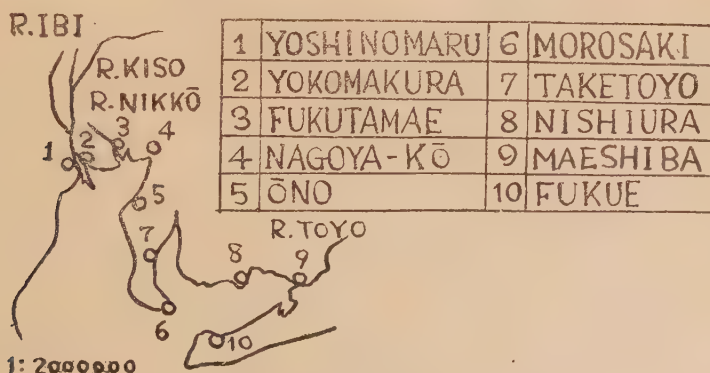 R.IBI
R.KISO
R.NIKKŌ
1 YOSHINOMARU 6 MOROSAKI
2 YOKOMAKURA 7 TAKETOYO
3 FUKUTAMAE 8 NISHIURA
4 NAGOYA-KŌ 9 MAESHIBA
5 ŌNO 10 FUKUE
1 2 3 4
5
R.TOYO
7 8 9
6
10
1: 2000000